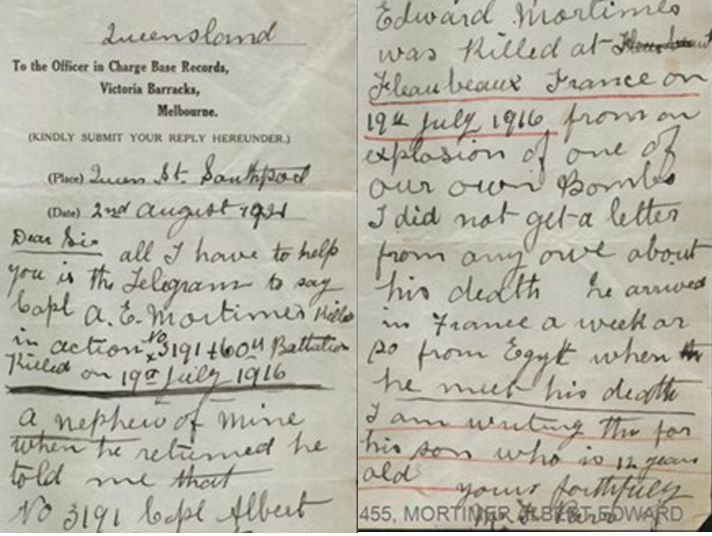 Queensland
To the Officer in Charge Base Records,
Victoria Barracks,
Melbourne.
(KINDLY SUBMIT YOUR REPLY HEREUNDER.)
(Place) Queen St. Southport
(Date) 2nd August 1921
Dear Sir
all I have to help
you is the Telegram to say
Capl A. E. Mortimer Killed
in action No 3191 60th Battalion
Killed on 19th July 1916
a nephew of mine
when he returned he
told me that
No 3191 Capl Albert
Edward Mortimer
was Killed at
Fleaubeaux France on
19th July 1916 from an
explosion of one of
our own Bombs
I did not get a letter
from any one about
his death he arrived
in France a week or
so from Egypt when
he meet his death
I am writing this for
his son who is 12 years
old
yours faithfully
455, MORTIMER ALBERT EDWARD